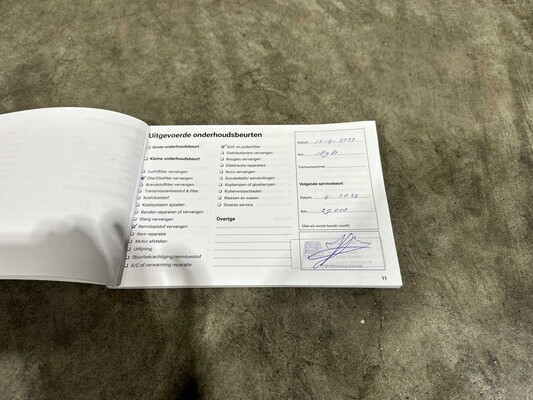 Uitgevoerde onderhoudsbeurten
Grote onderhoudsbeurt
Kleine onderhoudsbeurt
Luchtfilter vervangen
Olie/Oliefilter vervangen
Brandstoffilter vervangen
Transmissievloeistof & filter
Koelvloeistof
Koelsysteem spoelen
Banden repareren of vervangen
Slang vervangen
Remvloeistof vervangen
Rem reparatie
Motor afstellen
Uitlijning
Stuurbekrachtiging/remvloeistof
A/C of verwarming reparatie
Stof- en pollenfilter
Distributieriem vervangen
Bougies vervangen
Elektrische reparaties
Accu vervangen
Accukabels/ aansluitingen
Koplampen of gloeilampen
Ruitenwisserbladen
Wassen en waxen
Diverse service
Overige
Datum
Km.
Factuurnummer
Volgende servicebeurt
Datum 4 2024
Km. 29.000
(Wat als eerste bereikt wordt)
11